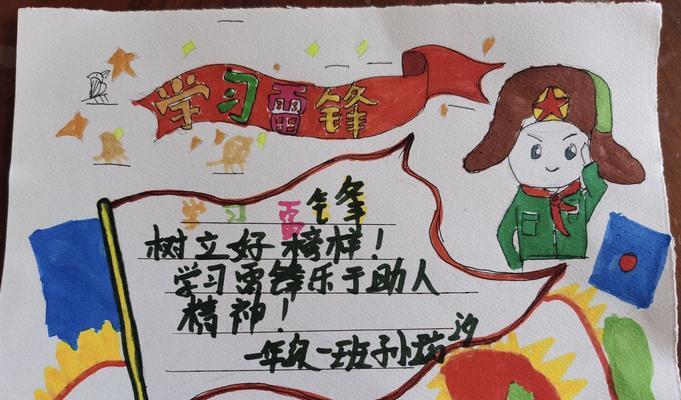 学习雷锋
学习 雷锋
树立好榜样！
学习雷锋乐于助人
精神！
一年级一班孙